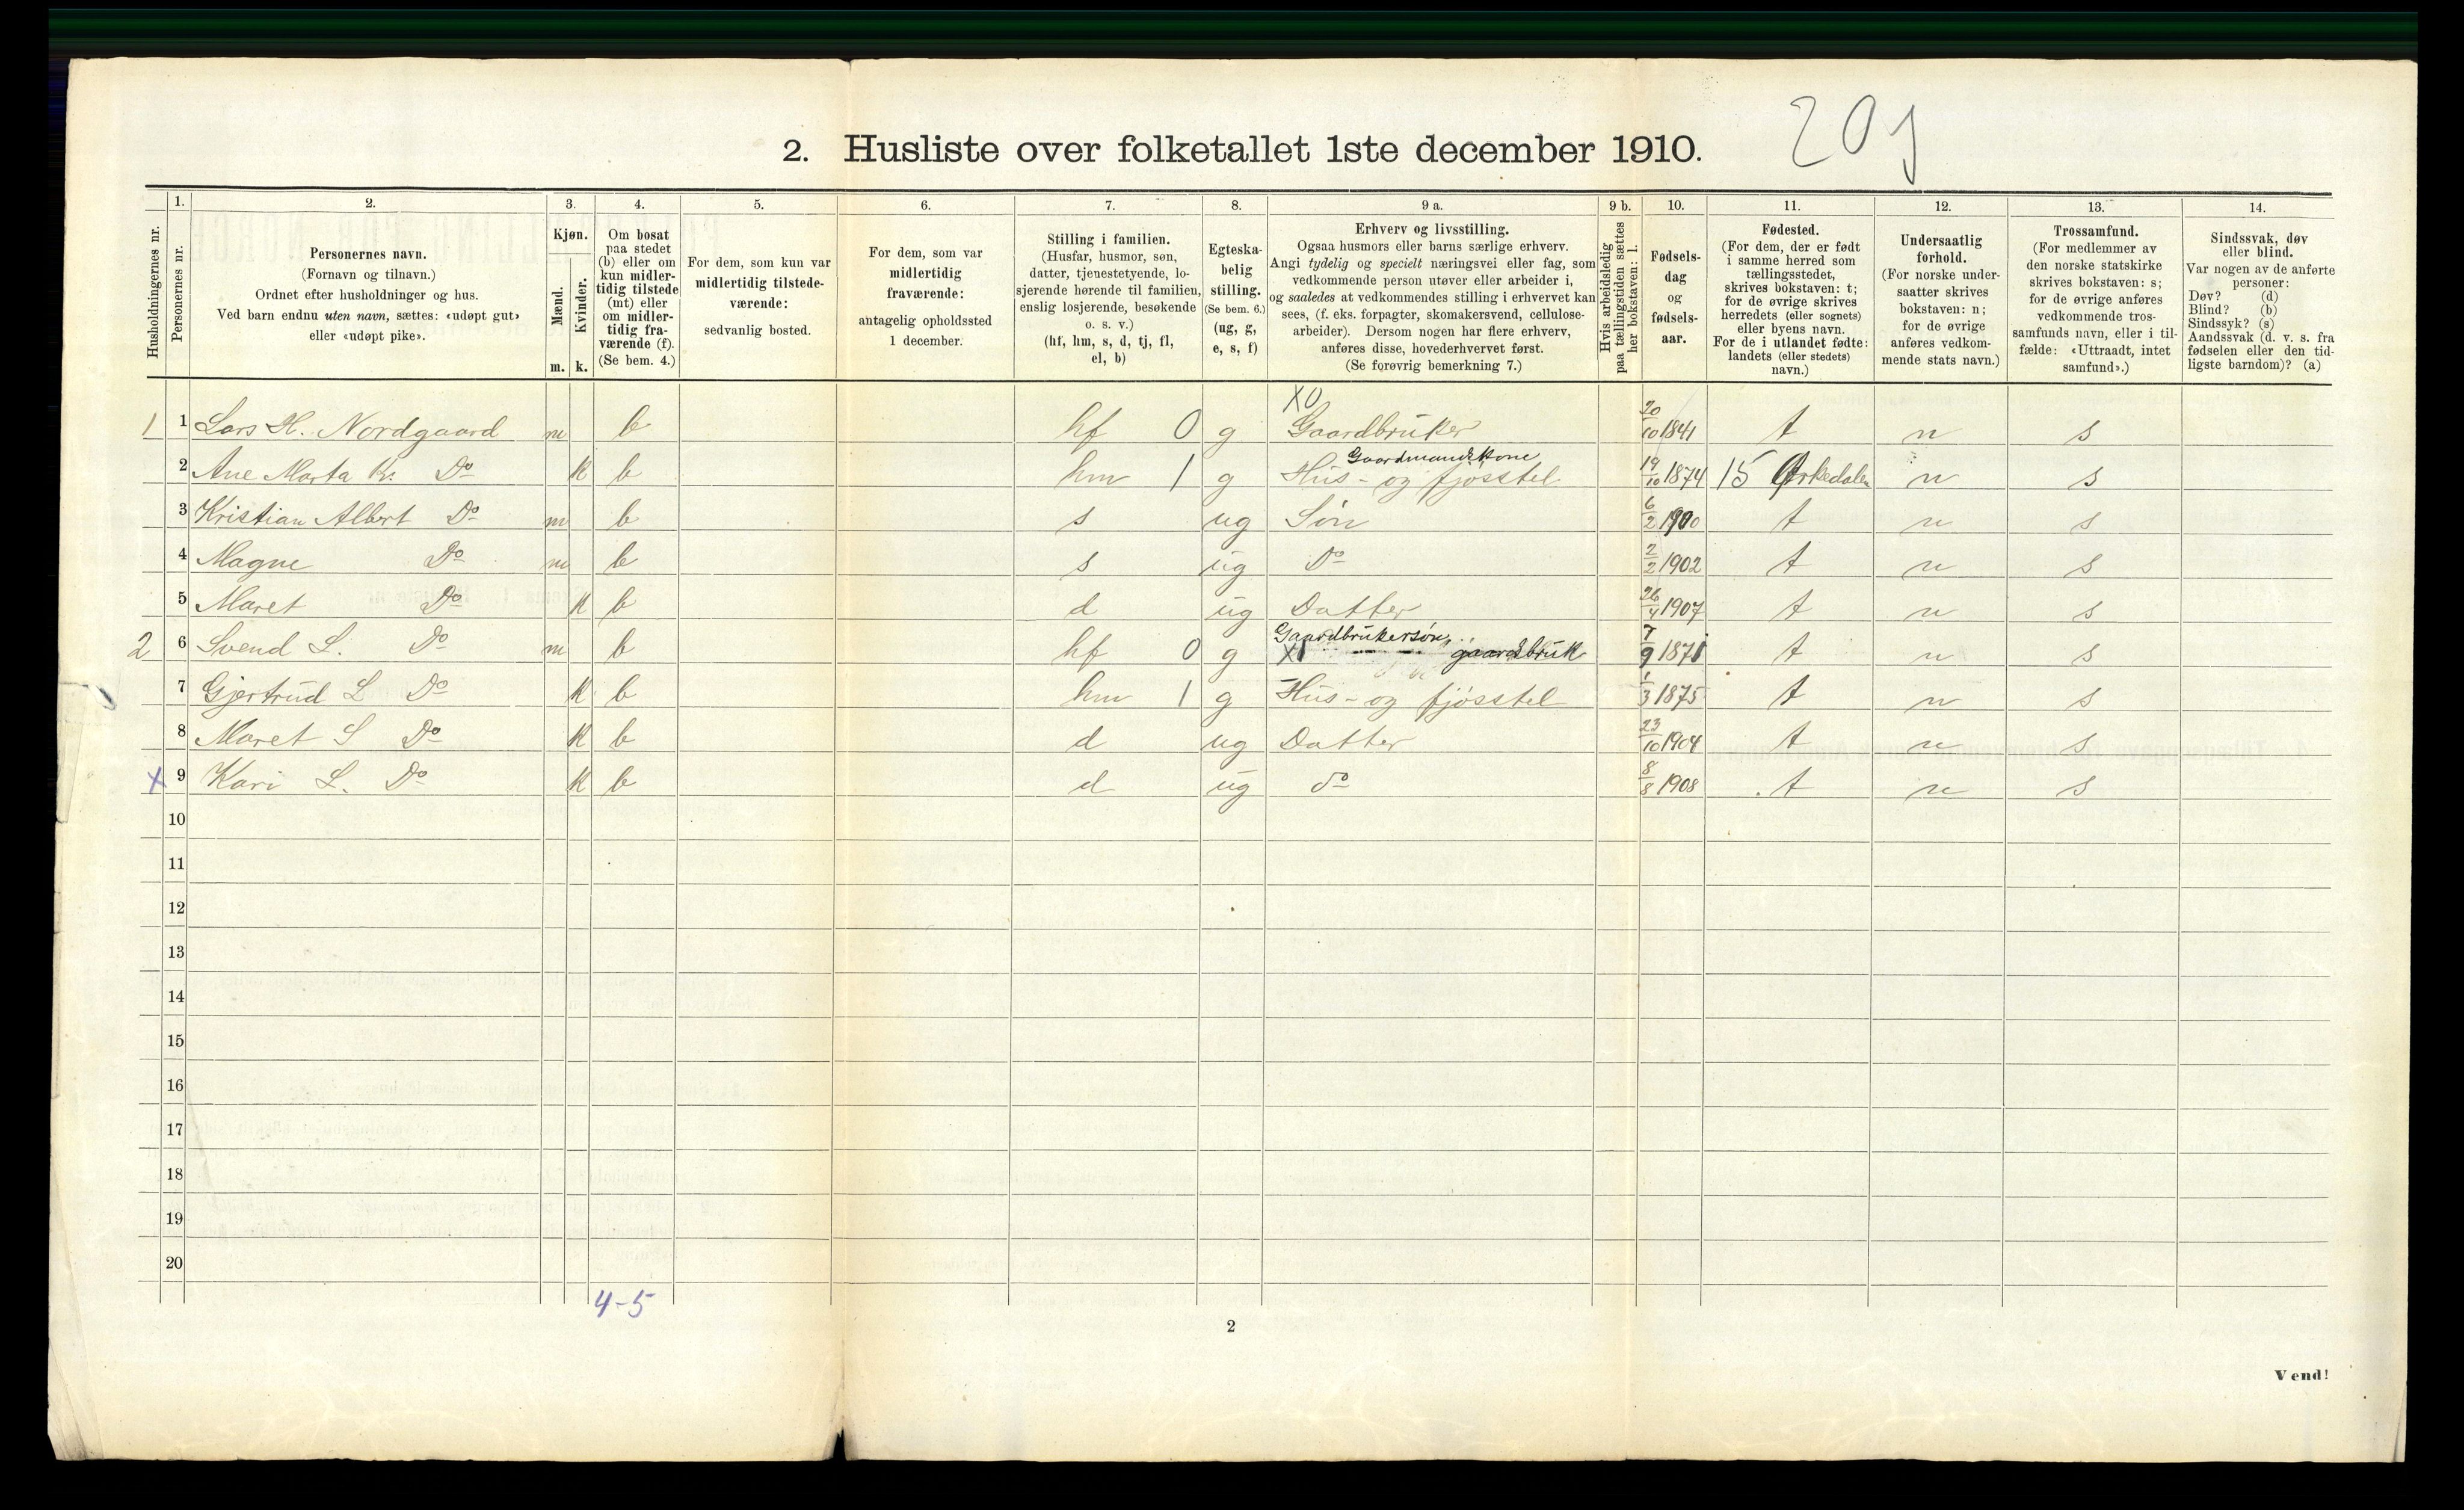 2. Husliste over folketallet 1ste december 1910.
209
1. 2. 3. 4. 5. 6. 7. 8. 9 a. 9 b. 10. 11. 12. 13. 14.
Husholdningernes nr.
Personernes nr.
Personernes navn.
(Fornavn og tilnavn.)
Ordnet efter husholdninger og hus.
Ved barn endnu uten navn, sættes: «udøpt gut»
eller «udøpt pike».
Kjøn.
Mænd.
Kvinder.
m. k.
Om bosat
paa stedet
(b) eller om
kun midler-
tidig tilstede
(mt) eller
om midler-
tidig fra-
værende (f).
(Se bem. 4.)
For dem, som kun var
midlertidig tilstede-
værende:
sedvanlig bosted.
For dem, som var
midlertidig
fraværende:
antagelig opholdssted
1 december.
Stilling i familien.
(Husfar, husmor, søn,
datter, tjenestetyende, lo-
sjerende hørende til familien,
enslig losjerende, besøkende
o. s. v.)
(hf, hm, s, d, tj, fl,
el, b)
Egteska-
belig
stilling.
(Se bem. 6.)
(ug, g,
e, s, f)
Erhverv og livsstilling.
Ogsaa husmors eller barns særlige erhverv.
Angi tydelig og specielt næringsvei eller fag, som
vedkommende person utøver eller arbeider i,
og saaledes at vedkommendes stilling i erhvervet kan
sees, (f. eks. forpagter, skomakersvend, cellulose-
arbeider). Dersom nogen har flere erhverv,
anføres disse, hovederhvervet først.
(Se forøvrig bemerkning 7.)
Hvis arbeidsledig
paa tællingstiden sættes
her bokstaven: l.
Fødsels-
dag
og
fødsels-
aar.
Fødested.
(For dem, der er født
i samme herred som
tællingsstedet,
skrives bokstaven: t;
for de øvrige skrives
herredets (eller sognets)
eller byens navn.
For de i utlandet fødte:
landets (eller stedets)
navn.)
Undersaatlig
forhold.
(For norske under-
saatter skrives
bokstaven: n;
for de øvrige
anføres vedkom-
mende stats navn.)
Trossamfund.
(For medlemmer av
den norske statskirke
skrives bokstaven: s;
for de øvrige anføres
vedkommende tros-
samfunds navn, eller i til-
fælde: «Uttraadt, intet
samfund».)
Sindssvak, døv
eller blind.
Var nogen av de anførte
personer:
Døv? (d)
Blind? (b)
Sindssyk? (s)
Aandssvak (d. v. s. fra
fødselen eller den tid-
ligste barndom)? (a)
X0
1 1 Lars H. Nordgaard m b hf 0 g Gaardbruker 20/10 1841 t n s
Gaardmandskone
2 Ane Marta K. Do k b hm 1 g Hus- og fjøsstel 19/10 1874 15 Ørkedalen n s
3 Kristian Albert Do m b s ug Søn 6/2 1900 t n s
4 Magne Do m b s ug Do 2/2 1902 t n s
5 Maret Do k b d ug Datter 26/4 1907 t n s
Gaardbrukersøn
2 6 Svend L. Do m b hf 0 g X1 gaardsbruk 7/9 1871 t n s
7 Gjertrud L Do k b hm 1 g Hus- og fjøsstel 1/3 1875 t n s
8 Maret S Do k b d ug Datter 23/10 1904 t n s
X 9 Kari L. Do k b d ug do 8/8 1908 t n s
10
11
12
13
14
15
16
17
18
19
20
4-5
2
Vend!